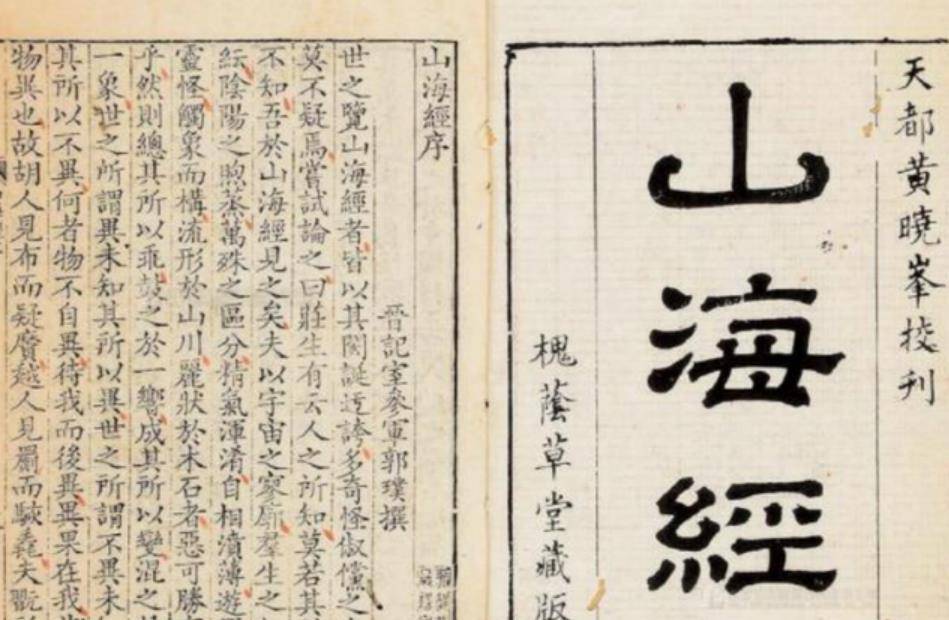 天都黄曉峯挍刋
山海經
槐蔭草堂藏版
山海經序
晉記室參軍郭璞撰
世之覽山海經者皆以其閎誕迂誇多奇怪俶儻之
莫不疑焉嘗試論之曰莊生有云人之所知莫若其
不知吾於山海經見之矣夫以宇宙之寥廓羣生之
紜陰陽之煦蒸萬殊之區分精氣渾淆自相濆薄遊
靈怪觸象而構流形於山川麗狀於木石者惡可勝
乎然則總其所以乖鼓之於一響成其所以變混之
一象世之所謂異未知其所以異世之所謂不異未
其所以不異何者物不自異待我而後異異果在我
物異也故胡人見布而疑黂越人見罽而駭毳夫翫